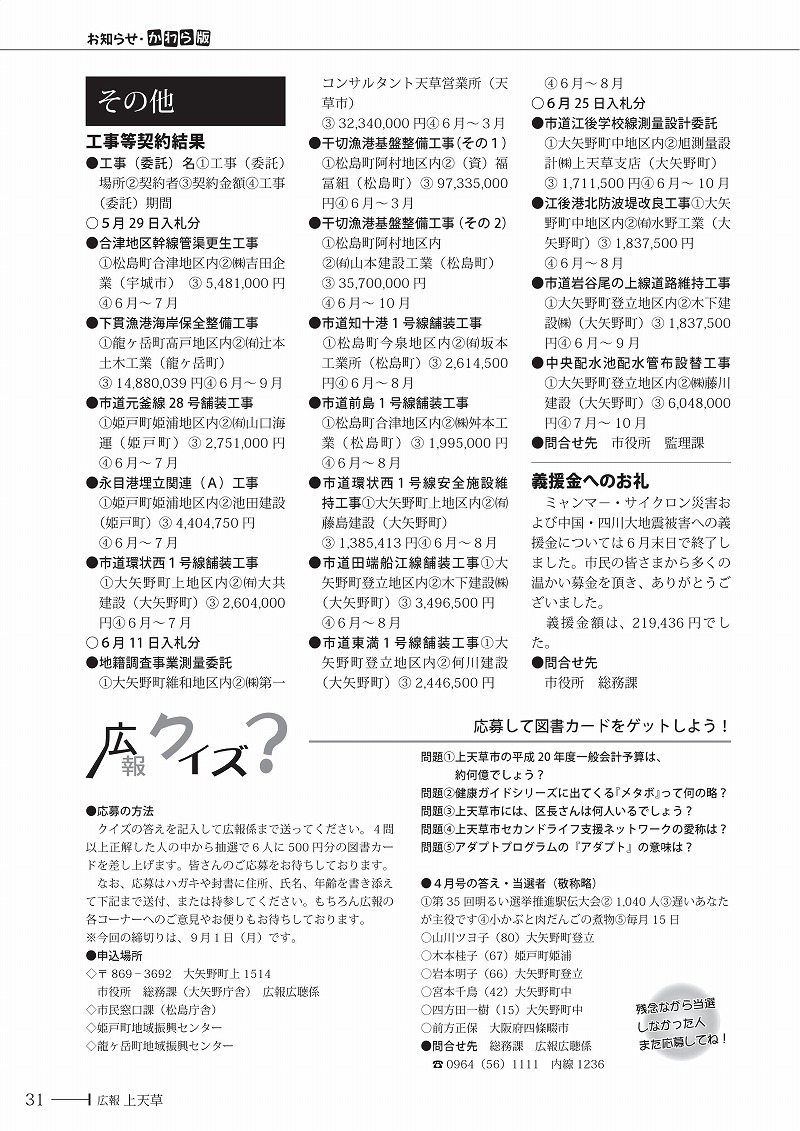 お知らせ・かわら版
その他
工事等契約結果
●工事（委託）名①工事（委託）
場所②契約者③契約金額④工事
（委託）期間
○５月 29 日入札分
●合津地区幹線管渠更生工事
①松島町合津地区内②㈱吉田企
業（宇城市） ③ 5,481,000 円
④６月～７月
●下貫漁港海岸保全整備工事
①龍ヶ岳町高戸地区内②㈲辻本
土木工業（龍ヶ岳町）
③ 14,880,039 円④６月～９月
●市道元釜線 28 号舗装工事
①姫戸町姫浦地区内②㈲山口海
運（姫戸町）③ 2,751,000 円
④６月～７月
●永目港埋立関連（Ａ）工事
①姫戸町姫浦地区内②池田建設
（姫戸町）③ 4,404,750 円
④６月～７月
●市道環状西１号線舗装工事
①大矢野町上地区内②㈲大共
建設（大矢野町）③ 2,604,000
円④６月～７月
○６月 11 日入札分
●地籍調査事業測量委託
①大矢野町維和地区内②㈱第一
コンサルタント天草営業所（天
草市）
③ 32,340,000 円④６月～３月
●干切漁港基盤整備工事（その１）
①松島町阿村地区内②（資）福
冨組（松島町）③ 97,335,000
円④６月～３月
●干切漁港基盤整備工事（その 2）
①松島町阿村地区内
②㈲山本建設工業（松島町）
③ 35,700,000 円
④６月～ 10 月
●市道知十港１号線舗装工事
①松島町今泉地区内②㈲坂本
工業所（松島町）③ 2,614,500
円④６月～８月
●市道前島１号線舗装工事
①松島町合津地区内②㈱舛本工
業（松島町）③ 1,995,000 円
④６月～８月
●市道環状西１号線安全施設維
持工事①大矢野町上地区内②㈲
藤島建設（大矢野町）
③ 1,385,413 円④６月～８月
●市道田端船江線舗装工事①大
矢野町登立地区内②木下建設㈱
（大矢野町）③ 3,496,500 円
④６月～８月
●市道東満１号線舗装工事①大
矢野町登立地区内②何川建設
（大矢野町）③ 2,446,500 円
④６月～８月
○６月 25 日入札分
●市道江後学校線測量設計委託
①大矢野町中地区内②旭測量設
計㈱上天草支店（大矢野町）
③ 1,711,500 円④６月～ 10 月
●江後港北防波堤改良工事①大矢
野町中地区内②㈲水野工業（大
矢野町）③ 1,837,500 円
④６月～８月
●市道岩谷尾の上線道路維持工事
①大矢野町登立地区内②木下建
設㈱（大矢野町）③ 1,837,500
円④６月～９月
●中央配水池配水管布設替工事
①大矢野町登立地区内②㈱藤川
建設（大矢野町）③ 6,048,000
円④７月～ 10 月
●問合せ先　市役所　監理課
義援金へのお礼
ミャンマー・サイクロン災害お
よび中国・四川大地震被害への義
援金については６月末日で終了し
ました。市民の皆さまから多くの
温かい募金を頂き、ありがとうご
ざいました。
義援金額は、219,436 円でし
た。
●問合せ先
市役所　総務課
広報クイズ？
応募して図書カードをゲットしよう！
●応募の方法
クイズの答えを記入して広報係まで送ってください。４問
以上正解した人の中から抽選で６人に 500 円分の図書カー
ドを差し上げます。皆さんのご応募をお待ちしております。
なお、応募はハガキや封書に住所、氏名、年齢を書き添え
て下記まで送付、または持参してください。もちろん広報の
各コーナーへのご意見やお便りもお待ちしております。
※今回の締切りは、９月１日（月）です。
●申込場所
◇〒 869－3692　大矢野町上 1514
市役所　総務課（大矢野庁舎） 広報広聴係
◇市民窓口課（松島庁舎）
◇姫戸町地域振興センター
◇龍ヶ岳町地域振興センター
問題①上天草市の平成 20 年度一般会計予算は、
約何億でしょう？
問題②健康ガイドシリーズに出てくる『メタボ』って何の略？
問題③上天草市には、区長さんは何人いるでしょう？
問題④上天草市セカンドライフ支援ネットワークの愛称は？
問題⑤アダプトプログラムの『アダプト』の意味は？
●４月号の答え・当選者（敬称略）
①第 35 回明るい選挙推進駅伝大会② 1,040 人③遅いあなた
が主役です④小かぶと肉だんごの煮物⑤毎月 15 日
○山川ツヨ子（80）大矢野町登立
○木本桂子（67）姫戸町姫浦
○岩本明子（66）大矢野町登立
○宮本千鳥（42）大矢野町中
○四方田一樹（15）大矢野町中
○前方正保　大阪府四條畷市
●問合せ先　総務課　広報広聴係
☎ 0964（56）1111　内線 1236
残念ながら当選
しなかった人
また応募してね！
31　広報 上天草